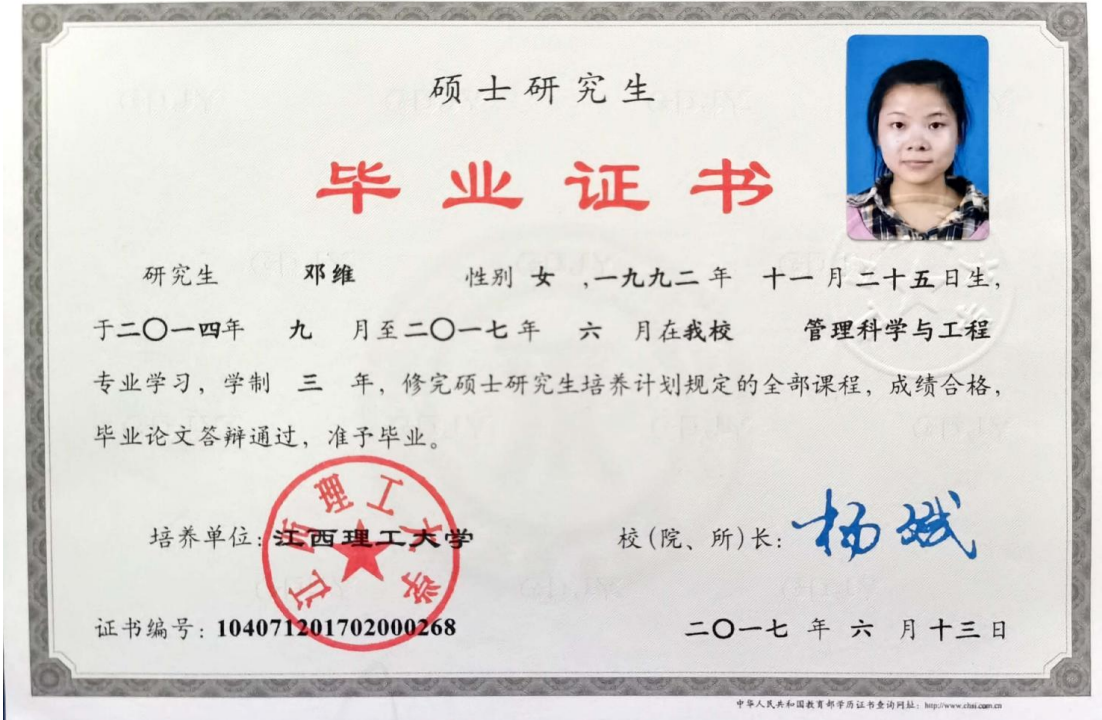 硕士研究生
毕业证书
研究生 邓维 性别 女 ,一九九二年 十一月二十五日生,
于二〇一四年 九 月至二〇一七年 六 月在我校 管理科学与工程
专业学习，学制 三 年，修完硕士研究生培养计划规定的全部课程，成绩合格，
毕业论文答辩通过，准予毕业。
江西理工大学
培养单位：江西理工大学 校(院、所)长：杨斌
证书编号：104071201702000268 二〇一七 年 六 月十三日
中华人民共和国教育部学历证书查询网址：http://www.chsi.com.cn